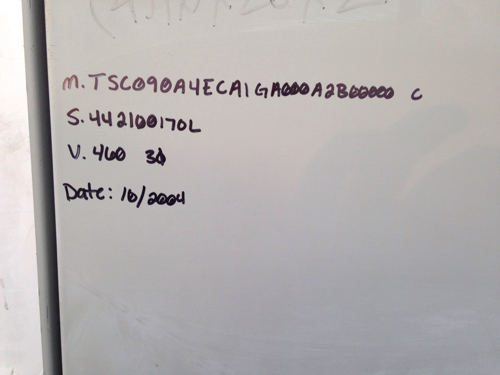 M.TSC090A4ECA1GA000A2B00000 C
S.442100170L
V.460 3Φ
Date: 10/2004